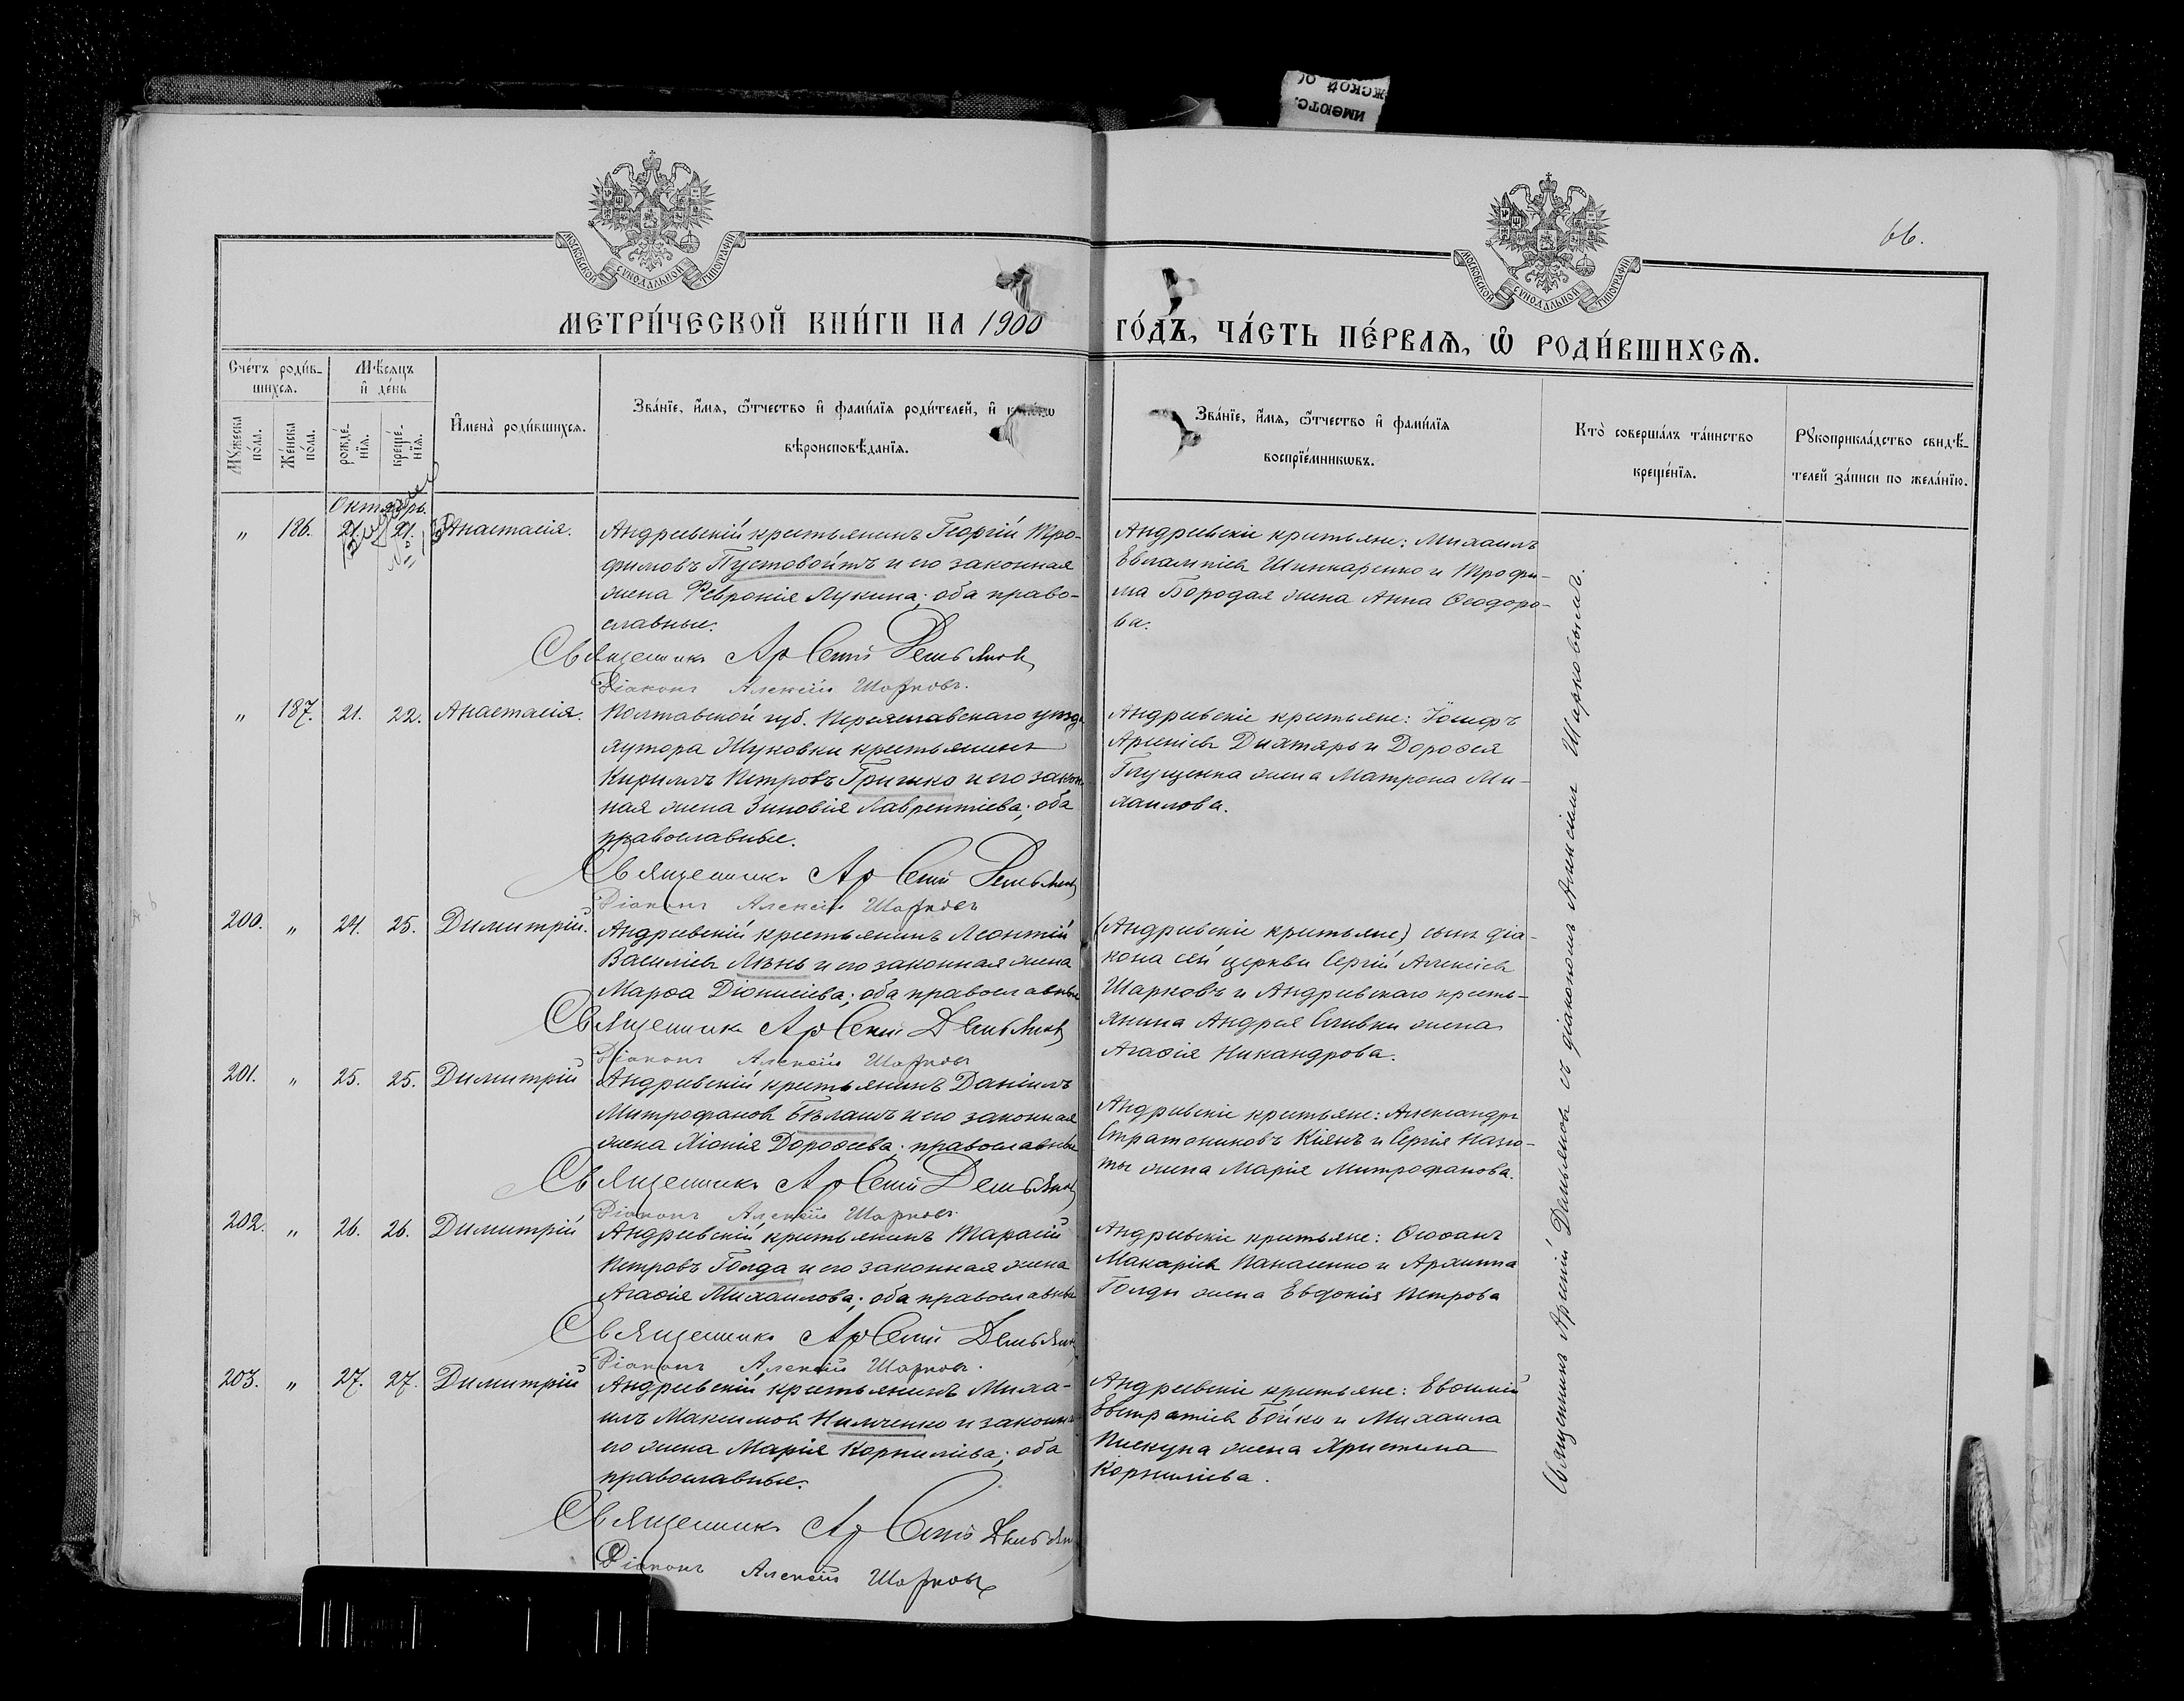 66.
МОСКОВСКОЙ СѴНОДАЛЬНОЙ ТИПОГРАФІИ
МОСКОВСКОЙ СѴНОДАЛЬНОЙ ТИПОГРАФІИ
МЕТРИ́ЧЕСКОЙ КНИ́ГИ НА 1900
ГО́ДЪ, ЧА́СТЬ ПЕ́РВАѦ, Ѡ҆ РОДИ́ВШИХСѦ.
Сче́тъ роди́в-
шихся.
Мꙋ́жеска по́ла.
Же́нска по́ла.
Мѣ́сяцъ
и҆ де́нь
рожде́-
нїя.
креще́-
нїя.
И҆мена̀ роди́вшихся.
Зва́нїе, и҆́мя, ѻ҆́тчество и҆ фами́лїя роди́телей, и҆
вѣроисповѣ́данїя.
Зва́нїе, и҆́мя, ѻ҆́тчество и҆ фами́лїя
воспрїе́мникѡвъ.
Кто̀ соверша́лъ та́инство
креще́нїя.
Рꙋкоприкла́дство свидѣ́-
телей за́писи по жела́нїю.
Октябрь.
„ 186. 21. 21. Анастасія.
Андреевскій крестьянинъ Георгій Тро-
фимовъ Пустовойтъ и его законная
жена Феврон­ія Лукина; оба право-
славные.
Священникъ Арсеній Демьяновъ
Діаконъ Алексій Шарковъ.
Андреевскіе крестьяне: Михаилъ
Евлампіевъ Шинкаренко и Трофи-
ма Бородая жена Анна Ѳеодоро-
ва.
„ 187. 21. 22. Анастасія.
Полтавской губ. Переяславскаго уѣзда
хутора Жуковки крестьянинъ
Кириллъ Петровъ Гришко и его закон-
ная жена Зиновія Лаврентіева; оба
православные.
Священникъ Арсеній Демьяновъ
Діаконъ Алексій Шарковъ
Андреевскіе крестьяне: Іосифъ
Арсеніевъ Дихтярь и Дороѳея
Глущенка жена Матрона Ми-
хаилова.
200. „ 24. 25. Димитрій.
Андреевскій крестьянинъ Леонтій
Василіевъ Лѣнь и его законная жена
Марѳа Діонисіева; оба православные
Священникъ Арсеній Демьяновъ
Діаконъ Алексій Шарковъ
(Андреевскіе крестьяне) сынъ діа-
кона сей церкви Сергій Алексіевъ
Шарковъ и Андреевскаго кресть-
янина Андрея Сливки жена
Агаѳія Никандрова.
201. „ 25. 25. Димитрій
Андреевскій крестьянинъ Даніилъ
Митрофановъ Бѣлашъ и его законная
жена Хіонія Дороѳеева; православные
Священникъ Арсеній Демьяновъ
Діаконъ Алексій Шарковъ
Андреевскіе крестьяне: Александръ
Стратониковъ Кіянъ и Сергія Назю-
ты жена Марія Митрофанова.
202. „ 26. 26. Димитрій
Андреевскій крестьянинъ Тарасій
Петровъ Голда и его законная жена
Агаѳія Михаилова; оба православные
Священникъ Арсеній Демьяновъ
Діаконъ Алексій Шарковъ.
Андреевскіе крестьяне: Ѳеофанъ
Макаріевъ Панасенко и Архиппа
Голды жена Евдокія Петрова
203. „ 27. 27. Димитрій
Андреевскій крестьянинъ Миха-
илъ Максимовъ Нимченко и законная
его жена Марія Корниліева; оба
православные.
Священникъ Арсеній Демьяновъ
Діаконъ Алексій Шарковъ
Андреевскіе крестьяне: Евѳимій
Евстратіевъ Бойко и Михаила
Пискуна жена Христина
Корниліева.
Священникъ Арсеній Демьяновъ съ діакономъ Алексіемъ Шарковымъ.